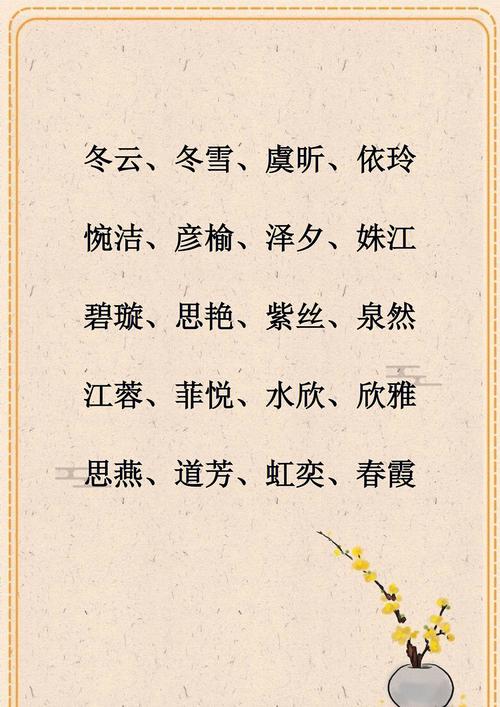 冬云、冬雪、虞昕、依玲
惋洁、彦榆、泽夕、姝江
碧璇、思艳、紫丝、泉然
江蓉、菲悦、水欣、欣雅
思燕、道芳、虹奕、春霞